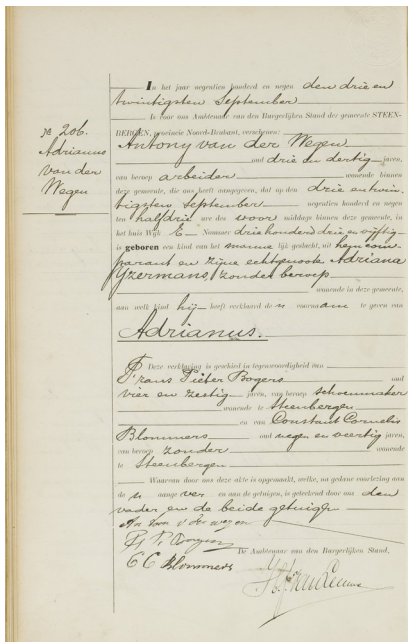 In het jaar negentien honderd en negen den drie en
twintigsten September
Is voor ons Ambtenaar van den Burgerlijken Stand der gemeente STEEN-
BERGEN, provincie Noord-Brabant, verschenen:
No 206.
Adrianus
van der
Wegen
Antony van der Wegen
oud drie en dertig jaren,
van beroep arbeider wonende binnen
deze gemeente, die ons heeft aangegeven, dat op den drie en twin-
tigsten September negentien honderd en negen
ten half drie ure des voor middags binnen deze gemeente, in
het huis Wijk E Nommer drie honderd drie en vijftig
is geboren een kind van het manne lijk geslacht, uit hem com-
parant en zijne echtgenoote Adriana
IJzermans, zonder beroep
wonende in deze gemeente,
aan welk kind hij heeft verklaard de n voornaam te geven van
Adrianus.
Deze verklaring is geschied in tegenwoordigheid van
Frans Pieter Bogers oud
vier en zestig jaren, van beroep schoenmaker
wonende te Steenbergen
en van Constant Cornelis
Blommers oud negen en veertig jaren,
van beroep zonder wonende
te Steenbergen
Waarvan door ons deze akte is opgemaakt, welke, na gedane voorlezing aan
de n aange ver en aan de getuigen, is geteekend door ons den
vader en de beide getuigen
v der wegen
P. Bogers
C C Blommers
De Ambtenaar van den Burgerlijken Stand,